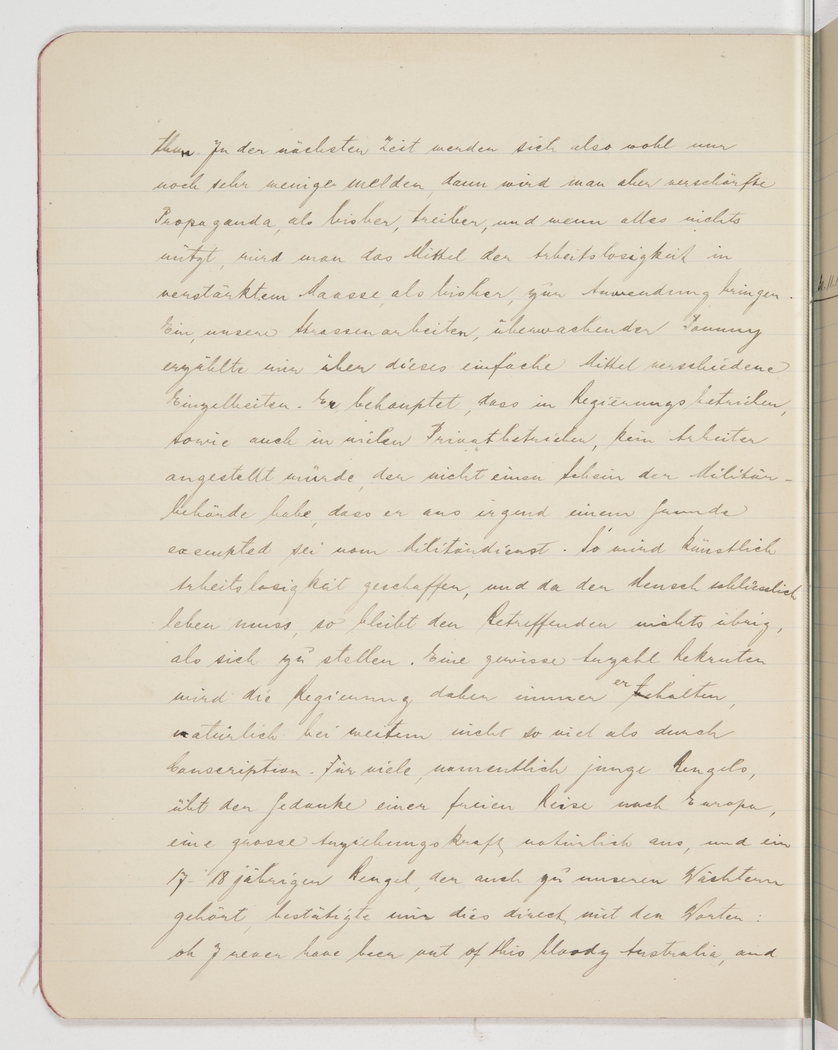 thun. In der nächsten Zeit werden sich also wohl nur
noch sehr wenige melden, dann wird man aber verschärfte
Propaganda, als bisher, treiben, und wenn alles nichts
nützt, wird man das Mittel der Arbeitslosigkeit in
verstärktem Maasse, als bisher, zur Anwendung bringen.
Ein, unsere Strassenarbeiten, überwachender Tommy
erzählte mir über dieses einfache Mittel verschiedene
Einzelheiten. Er behauptet, dass in Regierungsbetrieben,
sowie auch in vielen Privatbetrieben, kein Arbeiter
angestellt würde, der nicht einen Schein der Militär-
behörde habe, dass er aus irgend einem Grunde
exempted sei vom Militärdienst. So wird künstlich
Arbeitslosigkeit geschaffen, und da der Mensch schliesslich
leben muss, so bleibt den Betreffenden nichts übrig,
als sich zu stellen. Eine gewisse Anzahl Rekruten
wird die Regierung daher immer erhalten,
natürlich bei weitem nicht so viel als durch
Conscription. Für viele, namentlich junge Bengels,
übt der Gedanke einer freien Reise nach Europa,
eine grosse Anziehungskraft natürlich aus, und ein
17-18 jährigen Bengel, der auch zu unseren Wächtern
gehört, bestätigte mir dies direct mit den Worten:
oh I never have been out of this bloody Australia, and